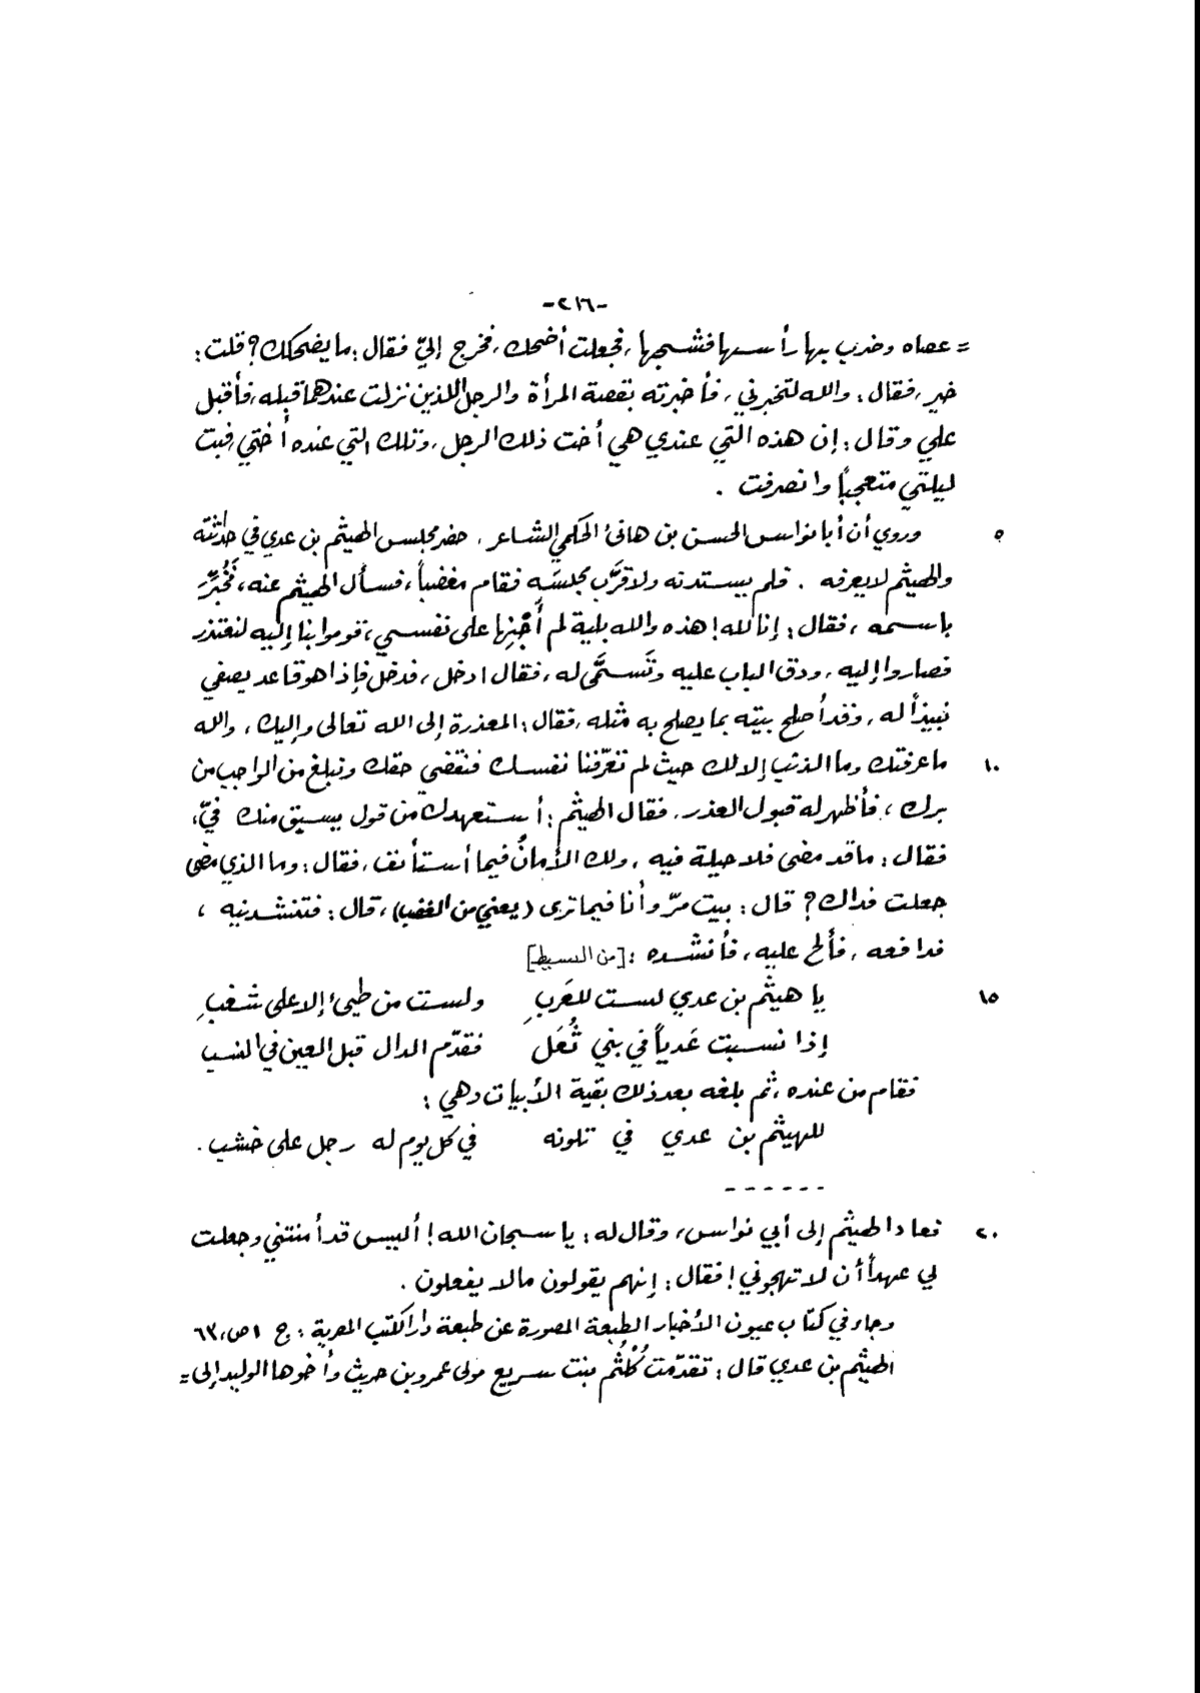 -٢١٦-
= عصاه وضرب بها رأسها فشجها، فجعلت أضحك، فخرج إليّ فقال: ما يضحكك؟ قلت:
خير، فقال: والله لتخبرني، فأخبرته بقصة المرأة والرجل اللذين نزلت عندهما قبله، فأقبل
علي وقال: إن هذه التي عندي هي أخت ذلك الرجل، وتلك التي عنده أختي، فبت
ليلتي متعجباً وانصرفت .
٥ وروي أن أبا نواس الحسن بن هانئ الحكمي الشاعر، حضر مجلس الهيثم بن عدي في حداثته
والهيثم لا يعرفه . فلم يستدنه ولا قرَّب مجلسَه فقام مغضباً، فسأل الهيثم عنه، فَخُبِّرَ
باسمه، فقال: إنا لله! هذه والله بلية لم أَجْنِها على نفسي، قوموا بنا إليه لنعتذر
فصاروا إليه، ودق الباب عليه وتَسمَّى له، فقال ادخل، فدخل فإذا هو قاعد يصفي
نبيذاً له، وقد أصلح بيته بما يصلح به مثله، فقال: المعذرة إلى الله تعالى وإليك، والله
١٠ ما عرفتك وما الذنب إلا لك حيث لم تعرّفنا نفسك فنقضي حقك ونبلغ من الواجب من
برك، فأظهر له قبول العذر. فقال الهيثم: أستعهدك من قول يسبق منك فيّ،
فقال: ما قد مضى فلا حيلة فيه، ولك الأمانُ فيما أستأنف، فقال: وما الذي مضى
جعلت فداك؟ قال: بيت مرّ وأنا فيما ترى (يعني من الغضب)، قال: فتنشدنيه ،
فدافعه، فألح عليه، فأنشده : [من البسيط]
١٥ يا هيثم بن عدي لست للعَربِ ولست من طيئ إلا على شغبِ
إذا نسبت عَدياً في بني ثُعَل فقدّم الدال قبل العين في النسب
فقام من عنده، ثم بلغه بعد ذلك بقية الأبيات وهي :
للهيثم بن عدي في تلونه في كل يوم له رجل على خشب .
------
٢٠ فعاد الهيثم إلى أبي نواس، وقال له: يا سبحان الله! أليس قد أمنتني وجعلت
لي عهداً أن لا تهجوني! فقال: إنهم يقولون ما لا يفعلون .
وجاء في كتاب عيون الأخبار الطبعة المصورة عن طبعة دار الكتب المصرية: ج ١ ص، ٦٣
الهيثم بن عدي قال: تقدّمت كُلْثُم بنت سريع مولى عمرو بن حريث وأخوها الوليد إلى =